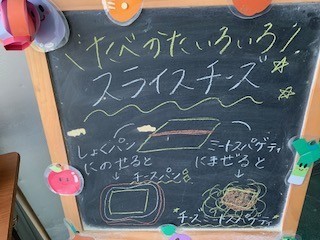 \たべかたいろいろ!/
スライスチーズ
しょくパン
にのせると
↓
チーズパン
ミートスパゲティ
にまぜると
↓
チーズミートスパゲティ